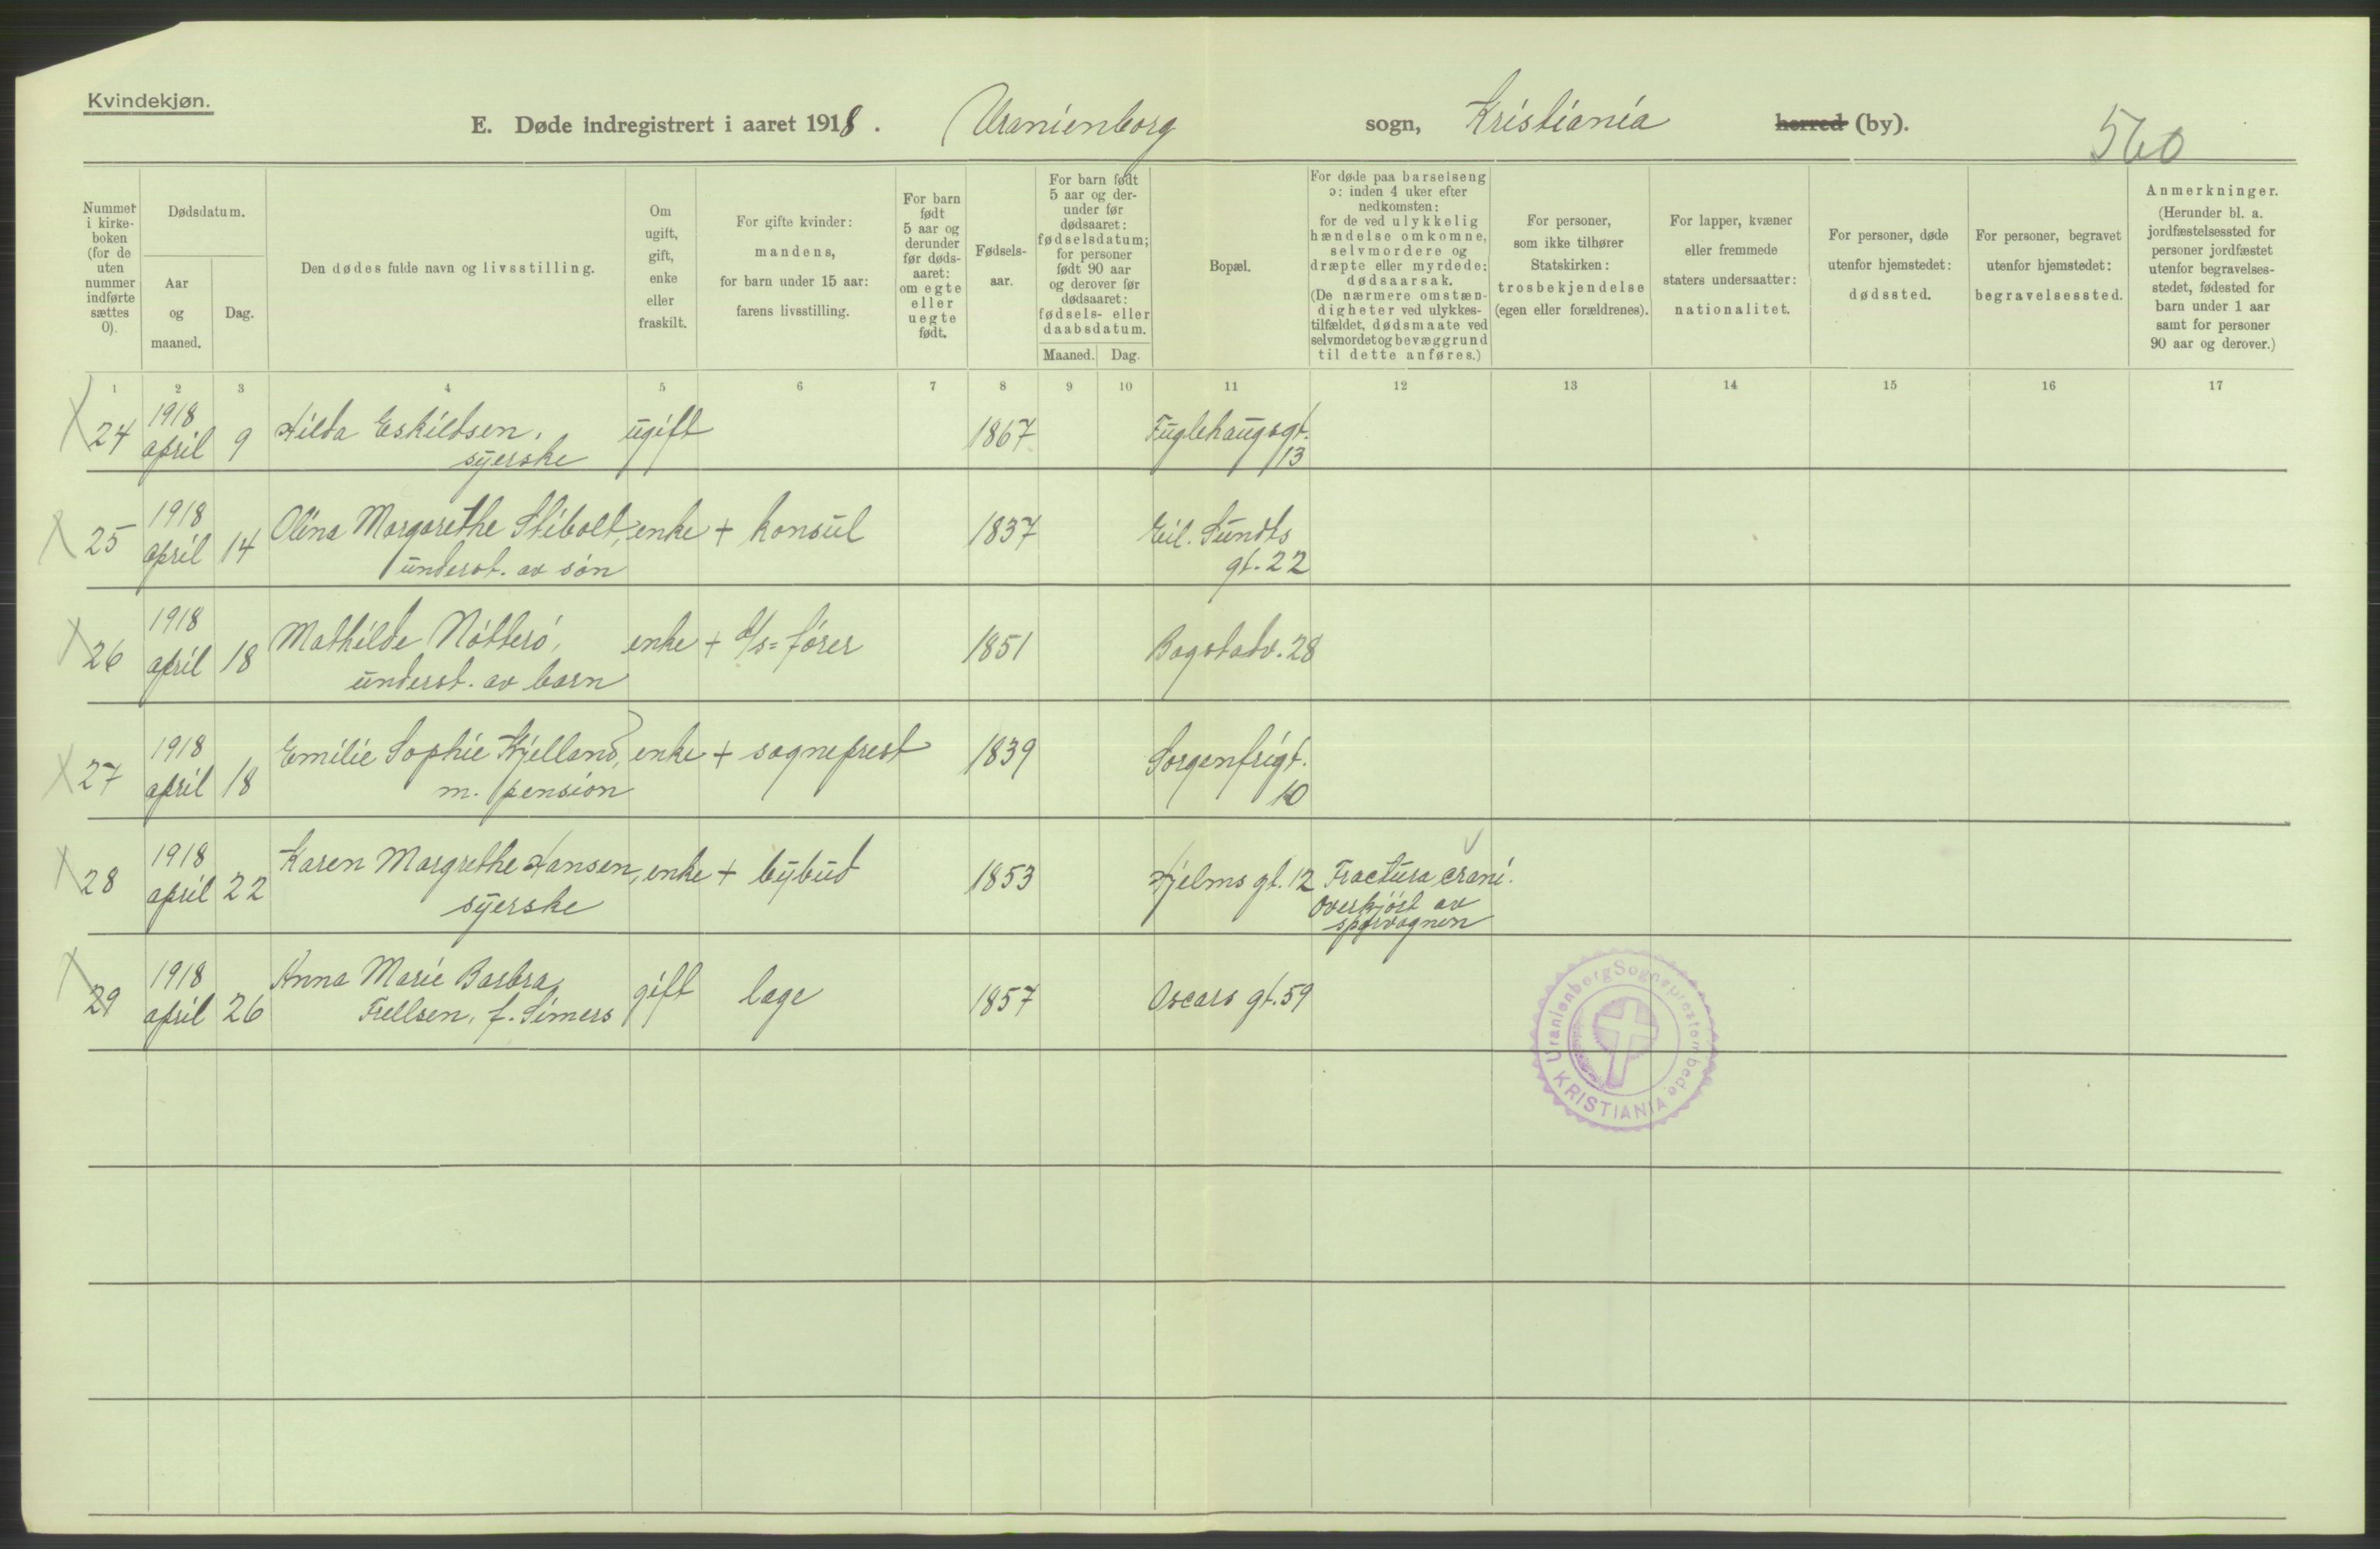 Kvindekjøn.
E. Døde indregistrert i aaret 1918. Uranienborg sogn, Kristiania herred (by). 560
Nummer i kirkeboken (for de uten nummer indførte sættes 0).
Dødsdatum.
Aar og maaned.
Dag.
Den dødes fulde navn og livsstilling.
Om ugift, gift, enke eller fraskilt.
For gifte kvinder: mandens, for barn under 15 aar: farens livsstilling.
For barn født 5 aar og derunder før dødsaaret: om egte eller uegte født.
Fødselsaar.
For barn født 5 aar og derunder før dødsaaret: fødselsdatum; for personer født 90 aar og derover før dødsaaret: fødsels- eller daabsdatum.
Maaned. Dag.
Bopæl.
For døde paa barselseng ɔ: inden 4 uker efter nedkomsten: for de ved ulykkelig hændelse omkomne, selvmordere og dræpte eller myrdede: dødsaarsak. (De nærmere omstændigheter ved ulykkestilfældet, dødsmaate ved selvmordet og bevæggrund til dette anføres.)
For personer, som ikke tilhører Statskirken: trosbekjendelse (egen eller forældrenes).
For lapper, kvæner eller fremmede staters undersaatter: nationalitet.
For personer, døde utenfor hjemstedet: dødssted.
For personer, begravet utenfor hjemstedet: begravelsessted.
Anmerkninger. (Herunder bl. a. jordfæstelsessted for personer jordfæstet utenfor begravelsesstedet, fødested for barn under 1 aar samt for personer 90 aar og derover.)
1 2 3 4 5 6 7 8 9 10 11 12 13 14 15 16 17
24 1918 april 9 Hilda Eskildsen, ugift 1867 Fuglehaugsgt. 13
syerske
25 1918 april 14 Olina Margarethe Stibolt, enke + konsul 1837 Eil. Sundts gt. 22
underst. av søn
26 1918 april 18 Mathilde Nötterö, enke + d/s=fører 1851 Bogstadv. 28
underst. av barn
27 1918 april 18 Emilie Sophie Kjelland, enke + sogneprest 1839 Sorgenfrigt. 10
m. pension
28 1918 april 22 Karen Margrethe Hansen, enke + bybud 1853 Hjelms gt. 12 Fractura crani.
syerske Overkjört av
sporvognen
29 1918 april 26 Anna Marie Barbra gift læge 1857 Oscars gt. 59
Frellsen, f. Simers
Uranienborg Sogneprestembede
KRISTIANIA